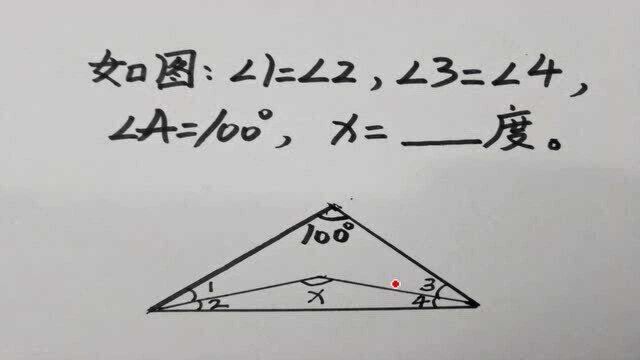 如图：∠1=∠2，∠3=∠4，
∠A=100°，x=____度。
100°
1 3
2 x 4